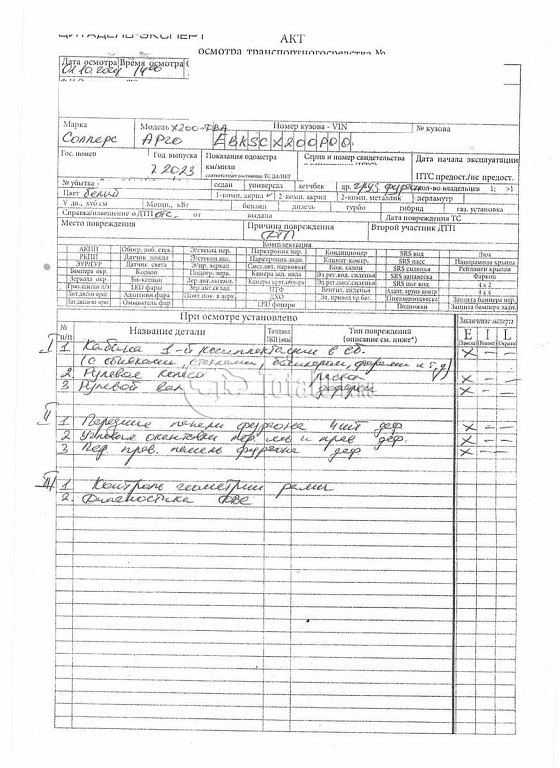 ЦИТАДЕЛЬ-ЭКСПЕРТ
АКТ
осмотра транспортного средства №
Дата осмотра Время осмотра
01.10.2024 1400
Марка Модель X200-TBA Номер кузова - VIN № кузова
Соллерс АРГО EBKSCX200P00
Гос. номер Год выпуска Показания одометра Серия и номер свидетельства Дата начала эксплуатации
7 2023 км/мили
соответствует состоянию ТС ДА/НЕТ ПТС предост./не предост.
№ убытка - седан универсал хетчбек др. груз. фургон кол-во владельцев 1; >1
Цвет белый 1-комп. акрил 2-комп. акрил 2-комп. металлик перламутр
V дв., куб.см Мощн., кВт бензин дизель турбо гибрид газ. установка
Справка/извещение о ДТП отс. от выдана Дата повреждения ТС
Место повреждения Причина повреждения Второй участник ДТП
ДТП
Комплектация
АКПП Обогр. лоб. стек. Эл/стекла пер. Парктроник пер. Кондиционер SRS вод Люк
РКПП Датчик дождя Эл/стекла зад. Парктроник задн. Климат-контр. SRS пасс Панорамная крыша
ЭУР/ГУР Датчик света Эл/пр. зеркал Сист.авт. парковки Кож. салон SRS сиденья Рейлинги крыши
Бампера окр. Ксенон Подогр. зерк. Камера зад. вида Эл.рег.вод. сиденья SRS занавеска Фаркоп
Зеркала окр. Би-ксенон Зер.авт.затемн. Камера круг.обзора Эл.рег.пасс.сиденья SRS ног вод 4 x 2
LED фары Зер авт.склад. ПТФ Вентил. сиденья Адап. круиз контр. 4 x 4
Адаптивн.фары Повт пов. в зерк. ДХО Эл. привод кр.баг. Пневмоподвеска Защита бампера пер.
Омыватель фар LED фонари Подножки Защита бампера задн.
При осмотре установлено Заключение эксперта
№ п/п Название детали Тип повреждений
(описание см. ниже*) E I L
I 1 Кабина 1-й комплектации в сб. X — —
(с обивками, стеклами, бампером, фарами и т.д)
2. Рулевое колесо X — —
3 Рулевой вал X — —
II 1 Передние панели фургона 4шт деф. X — —
2 Угловые окантовки пер. лев и прав деф. X — —
3 Пер. прав. панель фургона деф X — —
III 1 Контроль геометрии рамы
2. Диагностика